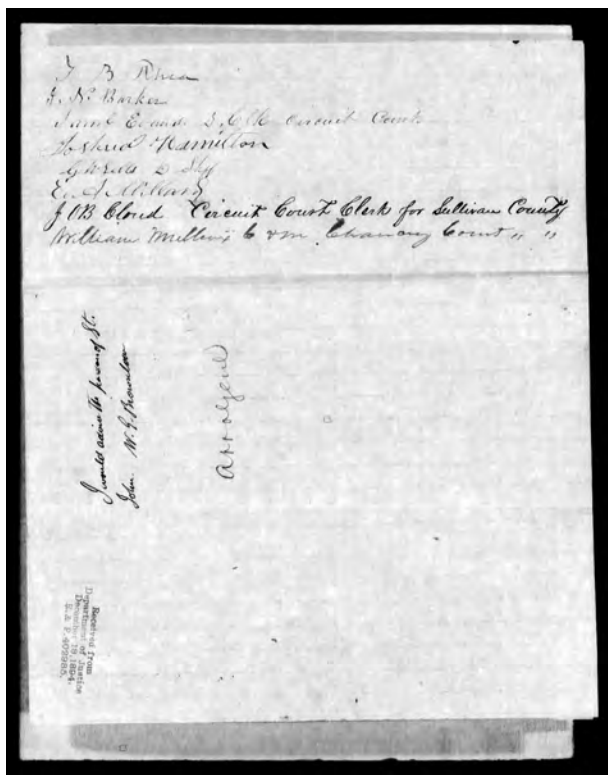 T B Rhea
J. N. Barker
Saml Evans D. Clk Circuit Court
Joshua Hamilton
D Shff
J OB Cloud Circuit Court Clerk for Sullivan County
William Mullenix C & M Chancery Court " "
I would advise the pardon of St.
John. W. G. Brownlow
Received from
Department of Justice
December 19, 1894.
R. & P. 402985.